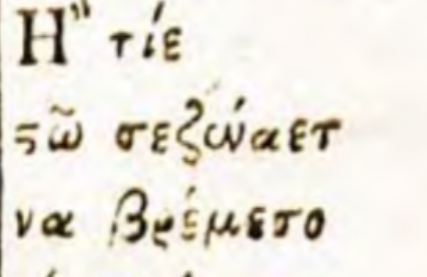 Η" τίε
ϛῶ σεζώαετ
να βρέμετο